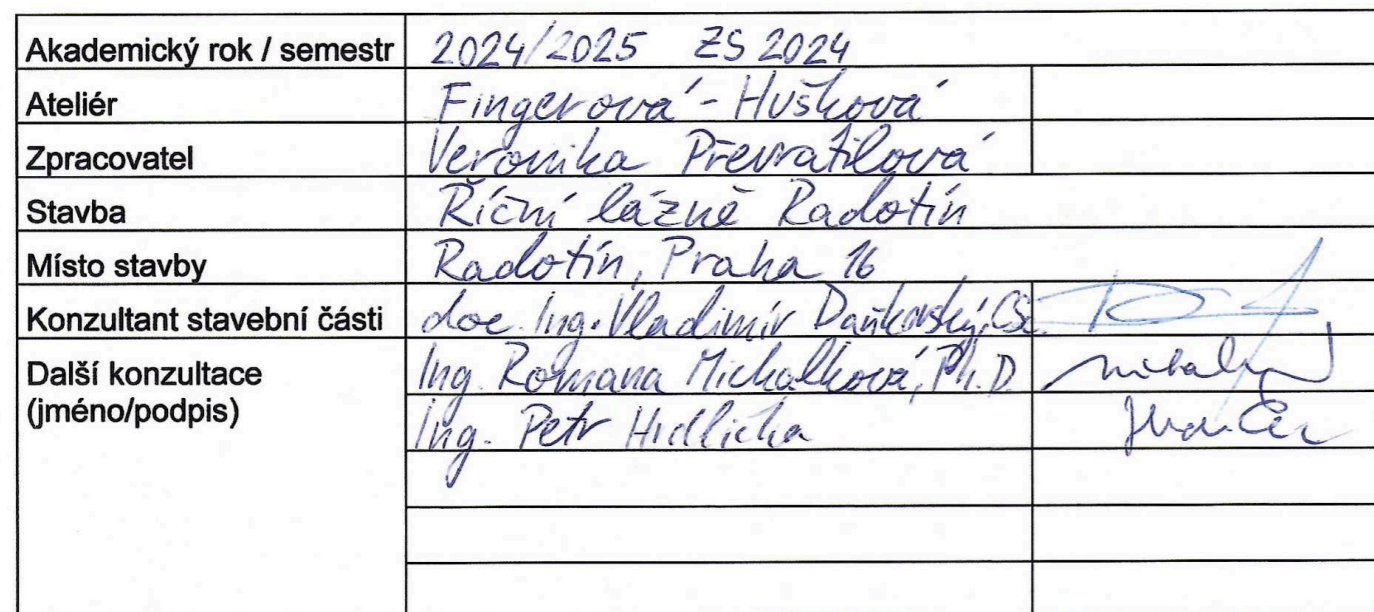 Akademický rok / semestr 2024/2025 ZS 2024
Ateliér Fingerová - Hušková
Zpracovatel Veronika Převrátilová
Stavba Říční lázně Radotín
Místo stavby Radotín, Praha 16
Konzultant stavební části doc. Ing. Vladimír Daňkovský, CSc.
Další konzultace Ing. Romana Michalková, Ph.D.
(jméno/podpis) Ing. Petr Hrdlička